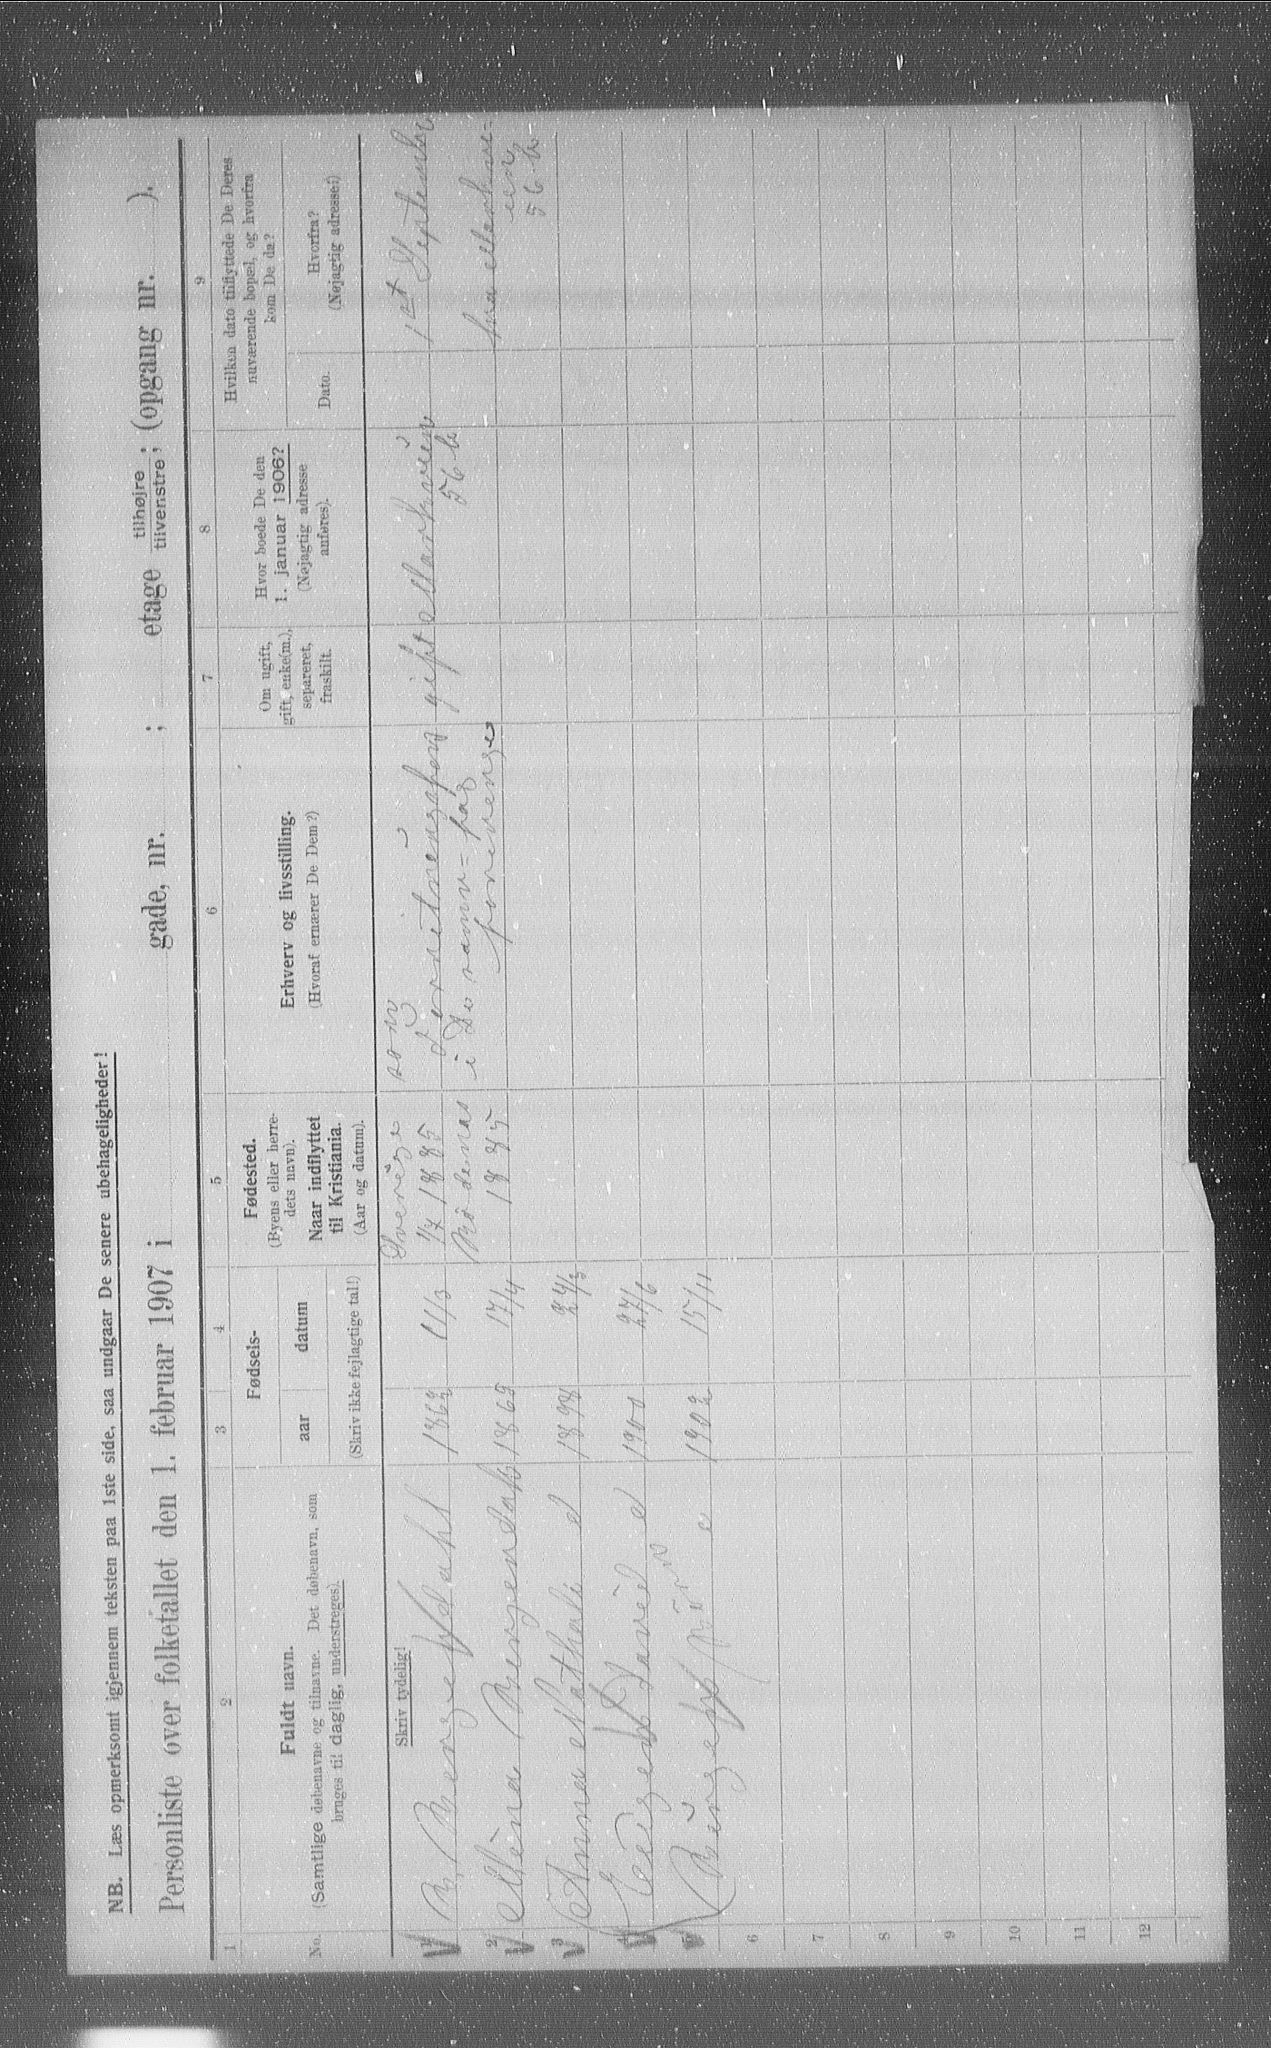 NB. Læs opmerksomt igjennem teksten paa 1ste side, saa undgaar De senere ubehageligheder!
Personliste over folketallet den 1. februar 1907 i gade, nr. ; etage tilhøjre tilvenstre ; (opgang nr. ).
1 2 3 4 5 6 7 8 9
No.
Fuldt navn.
(Samtlige døbenavne og tilnavne. Det døbenavn, som
bruges til daglig, understreges).
Fødsels-
aar datum
(Skriv ikke fejlagtige tal!)
Fødested.
(Byens eller herre-
dets navn).
Naar indflyttet
til Kristiania.
(Aar og datum).
Erhverv og livsstilling.
(Hvoraf ernærer De Dem?)
Om ugift,
gift, enke(m.),
separeret,
fraskilt.
Hvor boede De den
1. januar 1906?
(Nøjagtig adresse
anføres).
Hvilken dato tilflyttede De Deres
nuværende bopæl, og hvorfra
kom De da?
Dato.
Hvorfra?
(Nøjagtig adresse!)
Skriv tydelig!
1 11/3 Sverige 1/7 1885 gift Markveien 56 b 1st September
2 17/4 1885 i fra Markvei-
en
56 b
3 Anna Nathali d 1898 24/3
4 David d 1900 27/6
5 1902 15/11
6
7
8
9
10
11
12